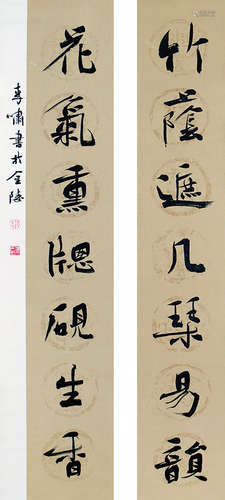 竹蔭遮几琹易韻
花氣熏牕硯生香
李嘯書於金陵